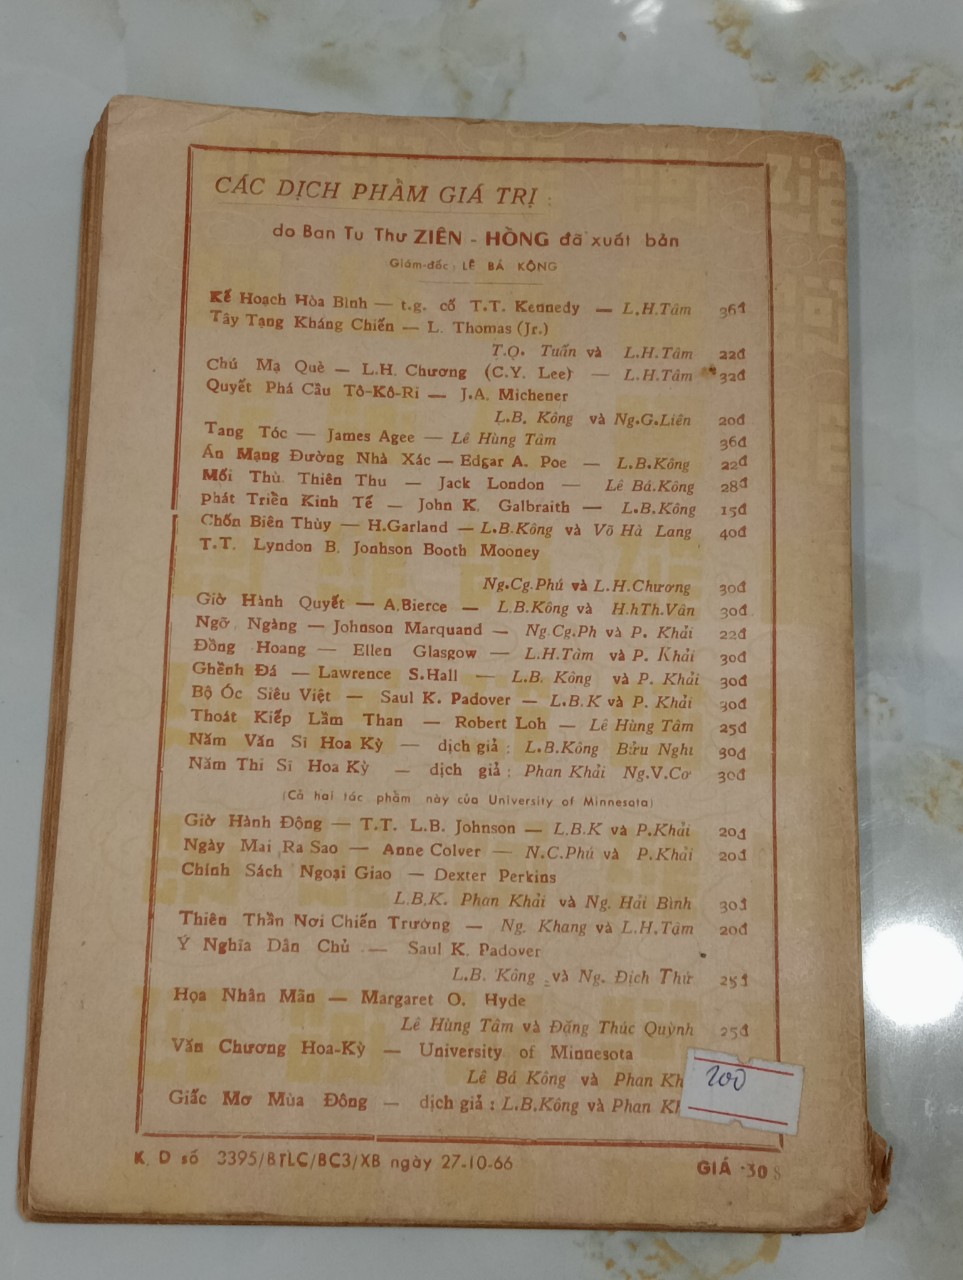 CÁC DỊCH PHẨM GIÁ TRỊ :
do Ban Tu Thư ZIÊN - HỒNG đã xuất bản
Giám-đốc : LÊ BÁ KÔNG
Kế Hoạch Hòa Bình — t.g. cố T.T. Kennedy — L.H.Tâm 36đ
Tây Tạng Kháng Chiến — L. Thomas (Jr.)
T.Q. Tuấn và L.H.Tâm 22đ
Chú Mạ Què — L.H. Chương (C.Y. Lee) — L.H.Tâm 32đ
Quyết Phá Cầu Tô-Kô-Ri — J.A. Michener
L.B. Kông và Ng.G.Liên 20đ
Tang Tóc — James Agee — Lê Hùng Tâm 36đ
Án Mạng Đường Nhà Xác — Edgar A. Poe — L.B.Kông 22đ
Mối Thù Thiên Thu — Jack London — Lê Bá.Kông 28đ
Phát Triển Kinh Tế — John K. Galbraith — L.B.Kông 15đ
Chốn Biên Thùy — H.Garland — L.B.Kông và Võ Hà Lang 40đ
T.T. Lyndon B. Jonhson Booth Mooney
Ng.Cg.Phú và L.H.Chương 30đ
Giờ Hành Quyết — A.Bierce — L.B.Kông và H.hTh.Vân 30đ
Ngỡ Ngàng — Johnson Marquand — Ng.Cg.Ph và P. Khải 22đ
Đồng Hoang — Ellen Glasgow — L.H.Tâm và P. Khải 30đ
Ghềnh Đá — Lawrence S.Hall — L.B. Kông và P. Khải 30đ
Bộ Óc Siêu Việt — Saul K. Padover — L.B.K và P. Khải 30đ
Thoát Kiếp Lầm Than — Robert Loh — Lê Hùng Tâm 25đ
Năm Văn Sĩ Hoa Kỳ — dịch giả : L.B.Kông Bửu Nghi 30đ
Năm Thi Sĩ Hoa Kỳ — dịch giả : Phan Khải Ng.V.Cơ 30đ
(Cả hai tác phẩm này của University of Minnesota)
Giờ Hành Động — T.T. L.B. Johnson — L.B.K và P.Khải 20đ
Ngày Mai Ra Sao — Anne Colver — N.C.Phú và P.Khải 20đ
Chính Sách Ngoại Giao — Dexter Perkins
L.B.K. Phan Khải và Ng. Hải Bình 30đ
Thiên Thần Nơi Chiến Trường — Ng. Khang và L.H.Tâm 20đ
Ý Nghĩa Dân Chủ — Saul K. Padover
L.B. Kông và Ng. Địch Thứ 25đ
Họa Nhân Mãn — Margaret O. Hyde
Lê Hùng Tâm và Đặng Thúc Quỳnh 25đ
Văn Chương Hoa-Kỳ — University of Minnesota
Lê Bá Kông và Phan Kh
Giấc Mơ Mùa Đông — dịch giả : L.B.Kông và Phan K
200
K. D số 3395/BTLC/BC3/XB ngày 27-10-66
GIÁ 30$